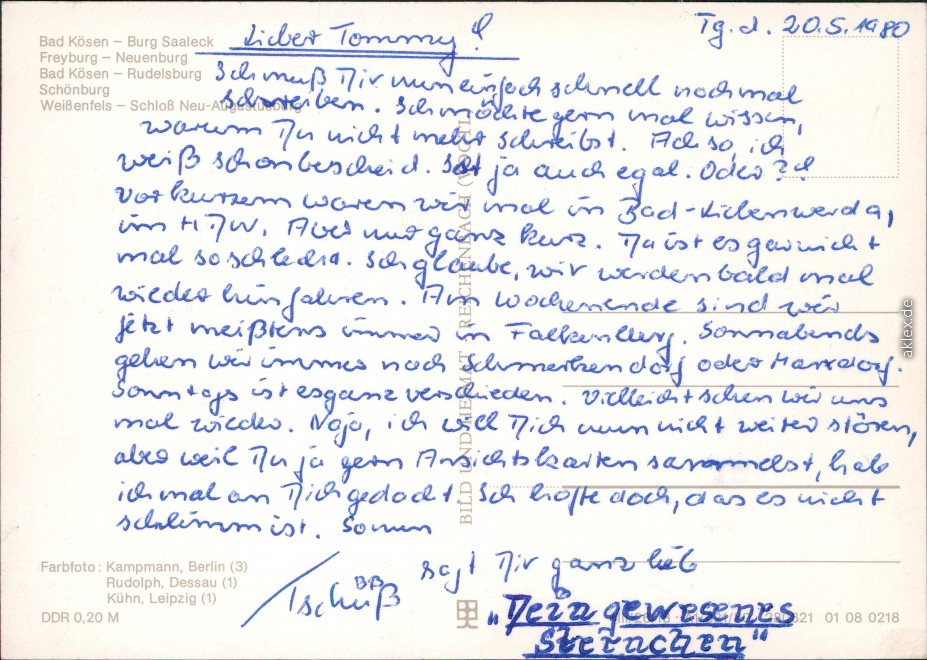 Tg. d. 20.5.1980
Bad Kösen – Burg Saaleck
Freyburg – Neuenburg
Bad Kösen – Rudelsburg
Schönburg
Weißenfels – Schloß Neu-Augustusburg
Lieber Tommy!
Ich muß Dir nun einfach schnell noch mal
schreiben. Ich möchte gern mal wissen,
warum Du nicht mehr schreibst. Ach so, ich
weiß schon bescheid. Ist ja auch egal. Oder?!
Vor kurzem waren wir mal in Bad-Liebenwerda,
im HDW. Aber nur ganz kurz. Da ist es gar nicht
mal so schlecht. Ich glaube, wir werden bald mal
wieder hinfahren. Am Wochenende sind wir
jetzt meißtens immer in Falkenberg. Sonnabends
gehen wir immer nach Schmerkendorf oder Marxdorf.
Sonntags ist es ganz verschieden. Vielleicht sehen wir uns
mal wieder. Naja, ich will Dich nun nicht weiter stören,
aber weil Du ja gern Ansichtskarten sammelst, hab
ich mal an Dich gedacht. Ich hoffe doch, das es nicht
schlimm ist. So nun
sagt Dir ganz lieb
Tschüß
BB
"Dein gewesenes
Sternchen"
BILD UND HEIMAT REICHENBACH (VOGTL)
Farbfoto: Kampmann, Berlin (3)
Rudolph, Dessau (1)
Kühn, Leipzig (1)
DDR 0,20 M
01 08 0218
aklex.de